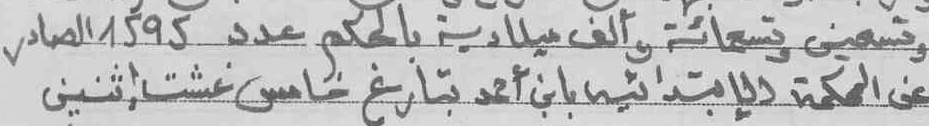 وتسعين وتسعمائة وألف ميلادية بالحكم عدد 1595 الصادر
عن المحكمة الابتدائية بابن أحمد بتاريخ خامس غشت إثنين